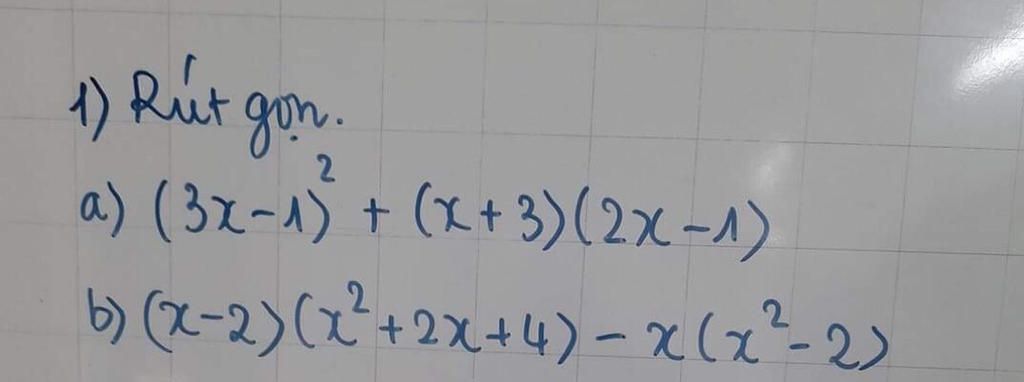 1) Rút gọn.
a) (3x-1)² + (x+3)(2x-1)
b) (x-2)(x²+2x+4) - x(x²-2)